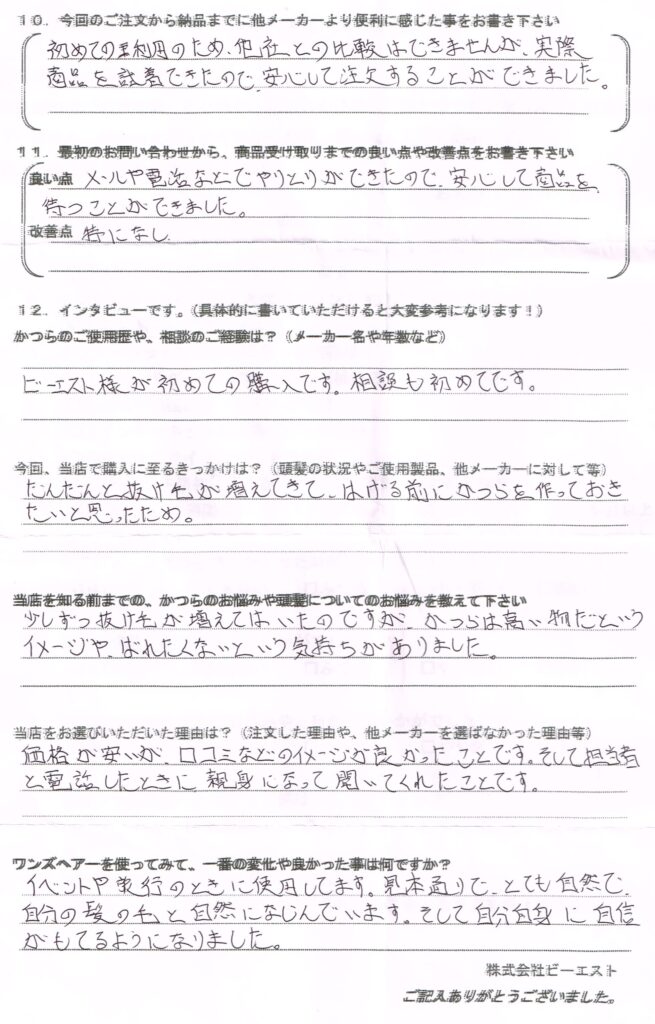 １０．今回のご注文から納品までに他メーカーより便利に感じた事をお書き下さい
初めての利用のため、他社との比較はできませんが、実際
商品を試着できたので、安心して注文することができました。
１１．最初のお問い合わせから、商品受け取りまでの良い点や改善点をお書き下さい
良い点 メールや電話などでやりとりができたので、安心して商品を、
待つことができました。
改善点 特になし
１２．インタビューです。（具体的に書いていただけると大変参考になります！）
かつらのご使用歴や、相談のご経験は？（メーカー名や年数など）
ビーエスト様が初めての購入です。相談も初めてです。
今回、当店で購入に至るきっかけは？（頭髪の状況やご使用製品、他メーカーに対して等）
だんだんと抜け毛が増えてきて、はげる前にかつらを作っておき
たいと思ったため。
当店を知る前までの、かつらのお悩みや頭髪についてのお悩みを教えて下さい
少しずつ抜け毛が増えてはいたのですが、かつらは高い物だという
イメージや、ばれたくないという気持ちがありました。
当店をお選びいただいた理由は？（注文した理由や、他メーカーを選ばなかった理由等）
価格が安いが、口コミなどのイメージが良かったことです。そして担当者
と電話したときに、親身になって聞いてくれたことです。
ワンズヘアーを使ってみて、一番の変化や良かった事は何ですか？
イベントや旅行のときに使用してます。見本通りで、とても自然で、
自分の髪の毛と自然になじんでいます。そして自分自身に自信
がもてるようになりました。
株式会社ビーエスト
ご記入ありがとうございました。